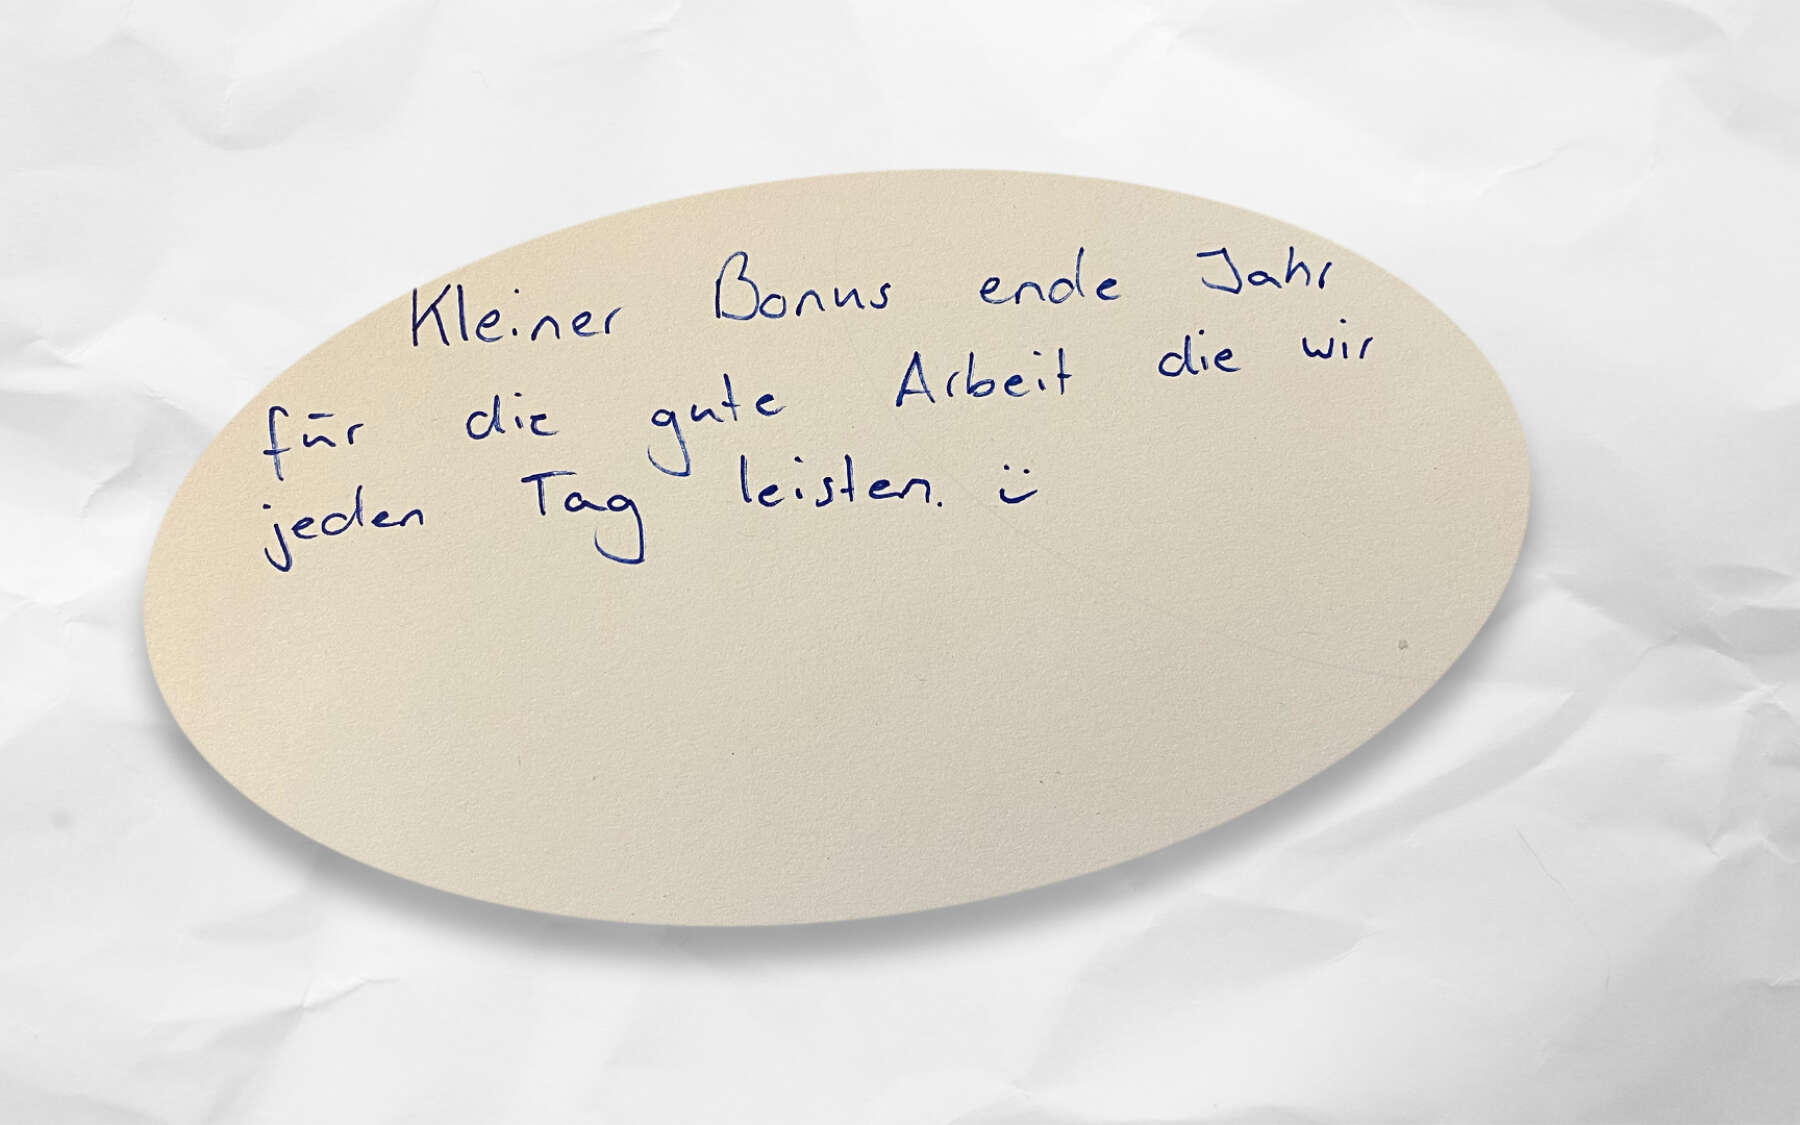 Kleiner Bonus ende Jahr
für die gute Arbeit die wir
jeden Tag leisten. :)